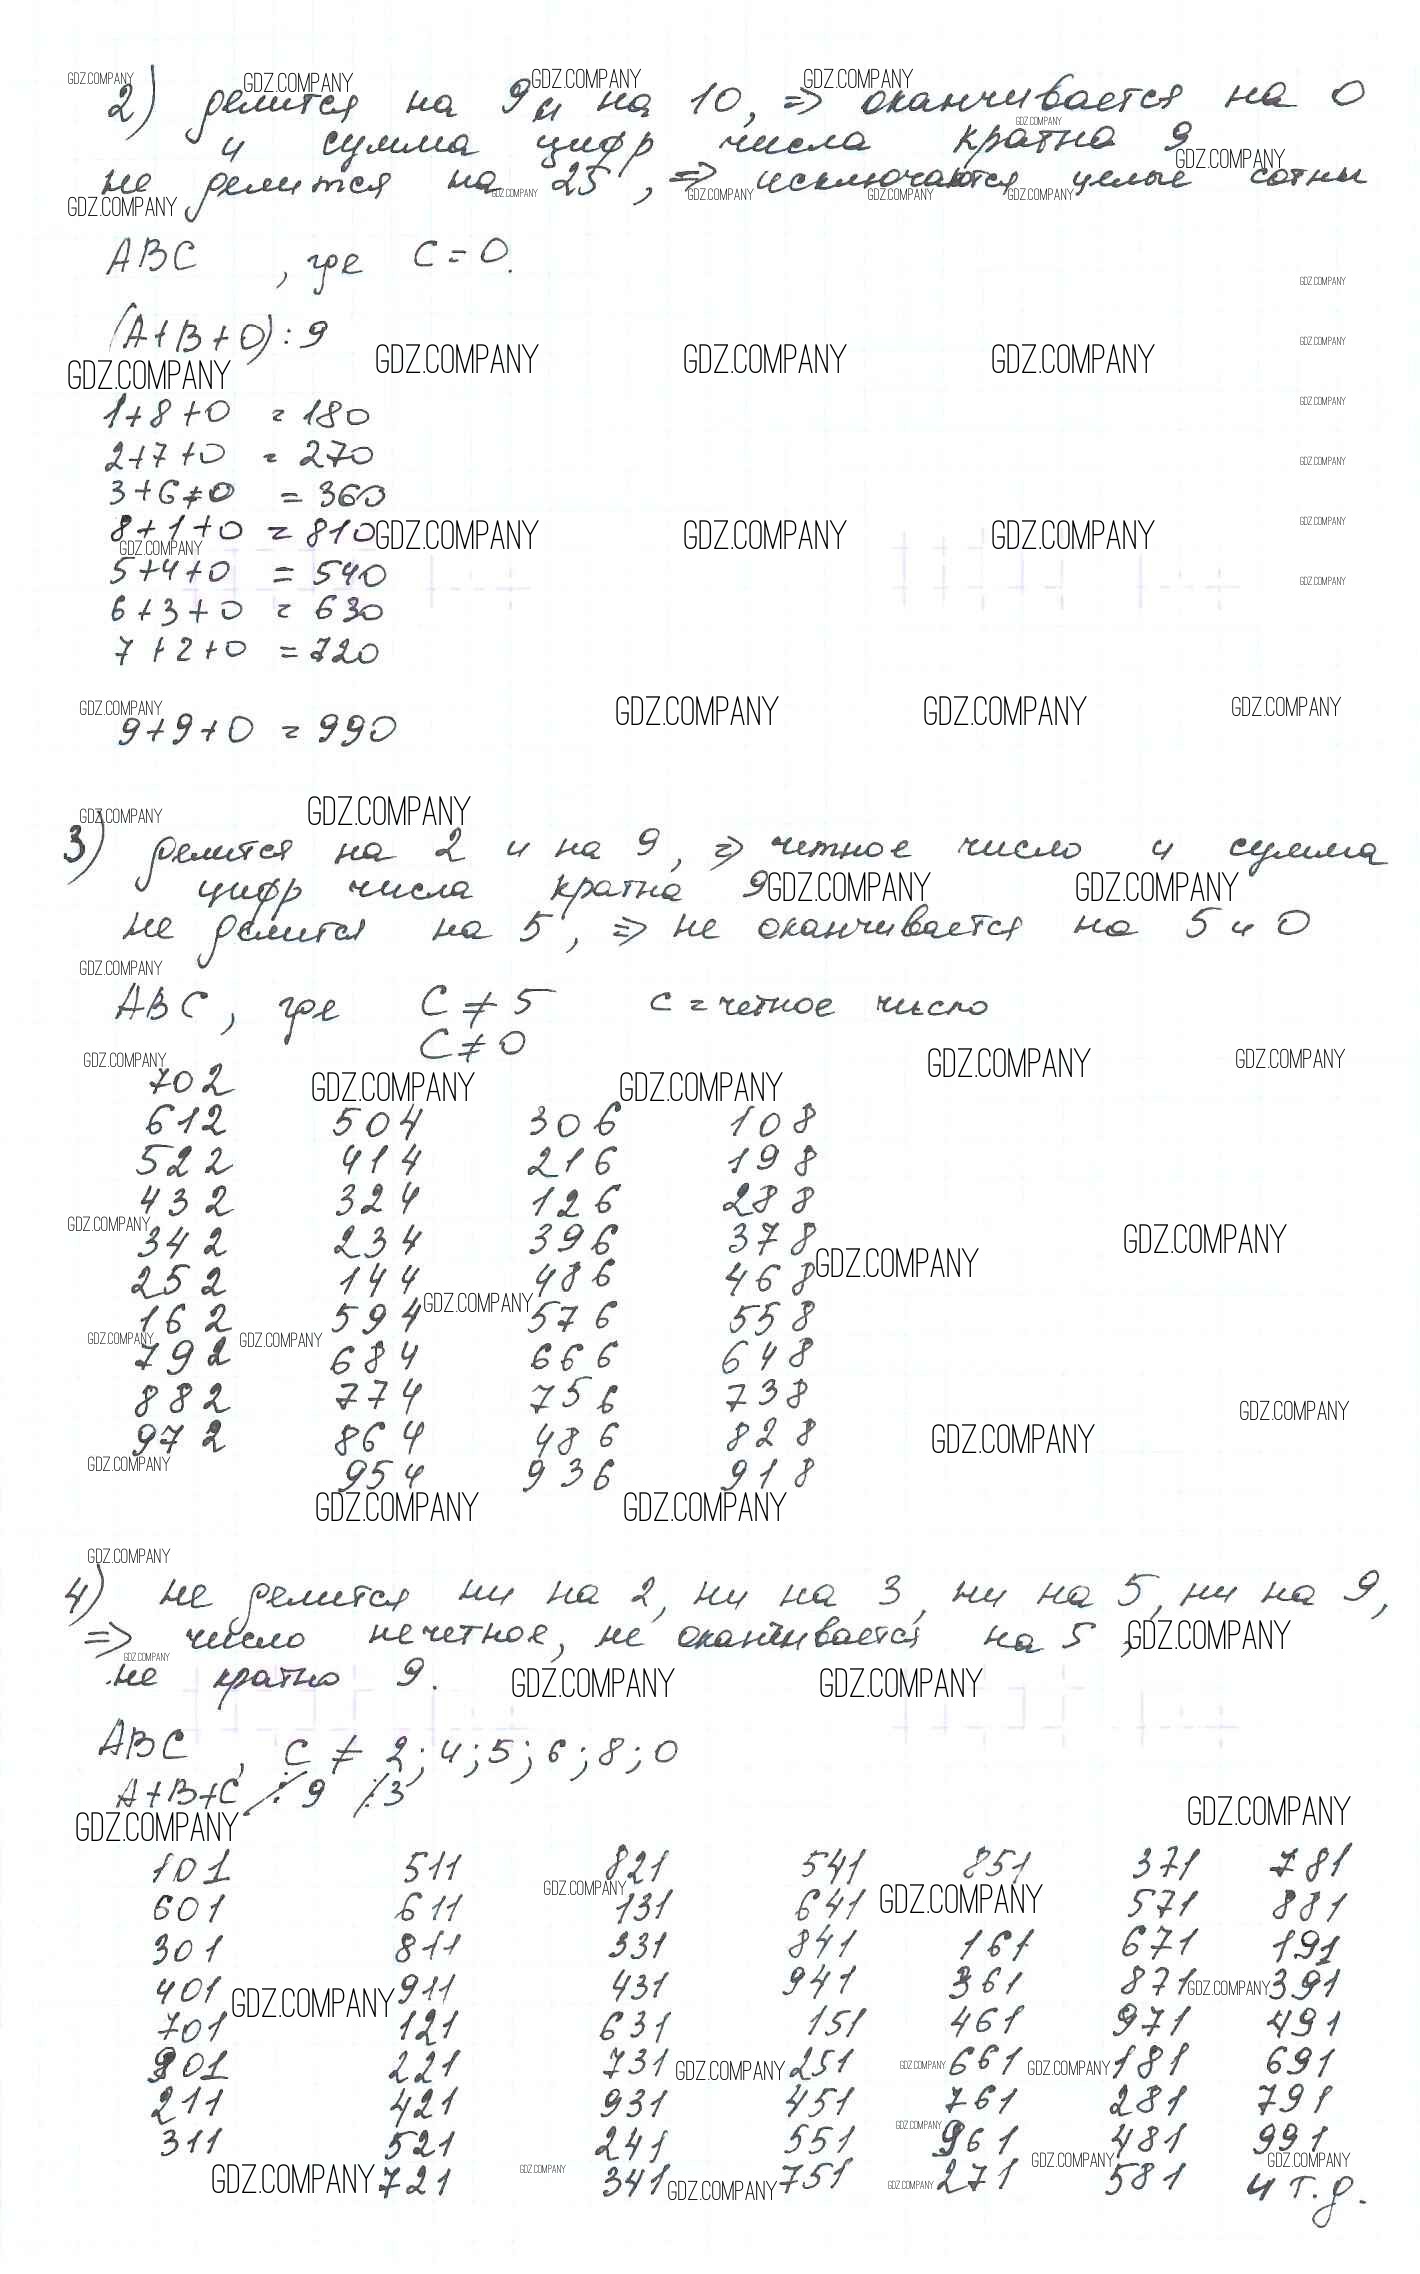 2) делится на 9 и на 10, => оканчивается на 0
и сумма цифр числа кратна 9
не делится на 25, => исключаются целые сотни
ABC , где C = 0.
(A+B+0) : 9
1+8+0 = 180
2+7+0 = 270
3+6+0 = 360
8+1+0 = 810
5+4+0 = 540
6+3+0 = 630
7+2+0 = 720
9+9+0 = 990
3) делится на 2 и на 9, => четное число и сумма
цифр числа кратна 9
не делится на 5, => не оканчивается на 5 и 0
ABC, где C ≠ 5 C = четное число
C ≠ 0
702
612 504 306 108
522 414 216 198
432 324 126 288
342 234 396 378
252 144 486 468
162 594 576 558
792 684 666 648
882 774 756 738
972 864 486 828
954 936 918
4) не делится ни на 2, ни на 3, ни на 5, ни на 9,
=> число нечетное, не оканчивается на 5,
не кратно 9.
ABC , C ≠ 2; 4; 5; 6; 8; 0
A+B+C ⋮̸ 9 ⋮̸ 3
101 511 821 541 851 371 781
601 611 131 641 571 881
301 811 331 841 161 671 191
401 911 431 941 361 871 391
701 121 631 151 461 971 491
901 221 731 251 661 181 691
211 421 931 451 761 281 791
311 521 241 551 961 481 991
721 341 751 271 581 и т.д.
GDZ.COMPANY